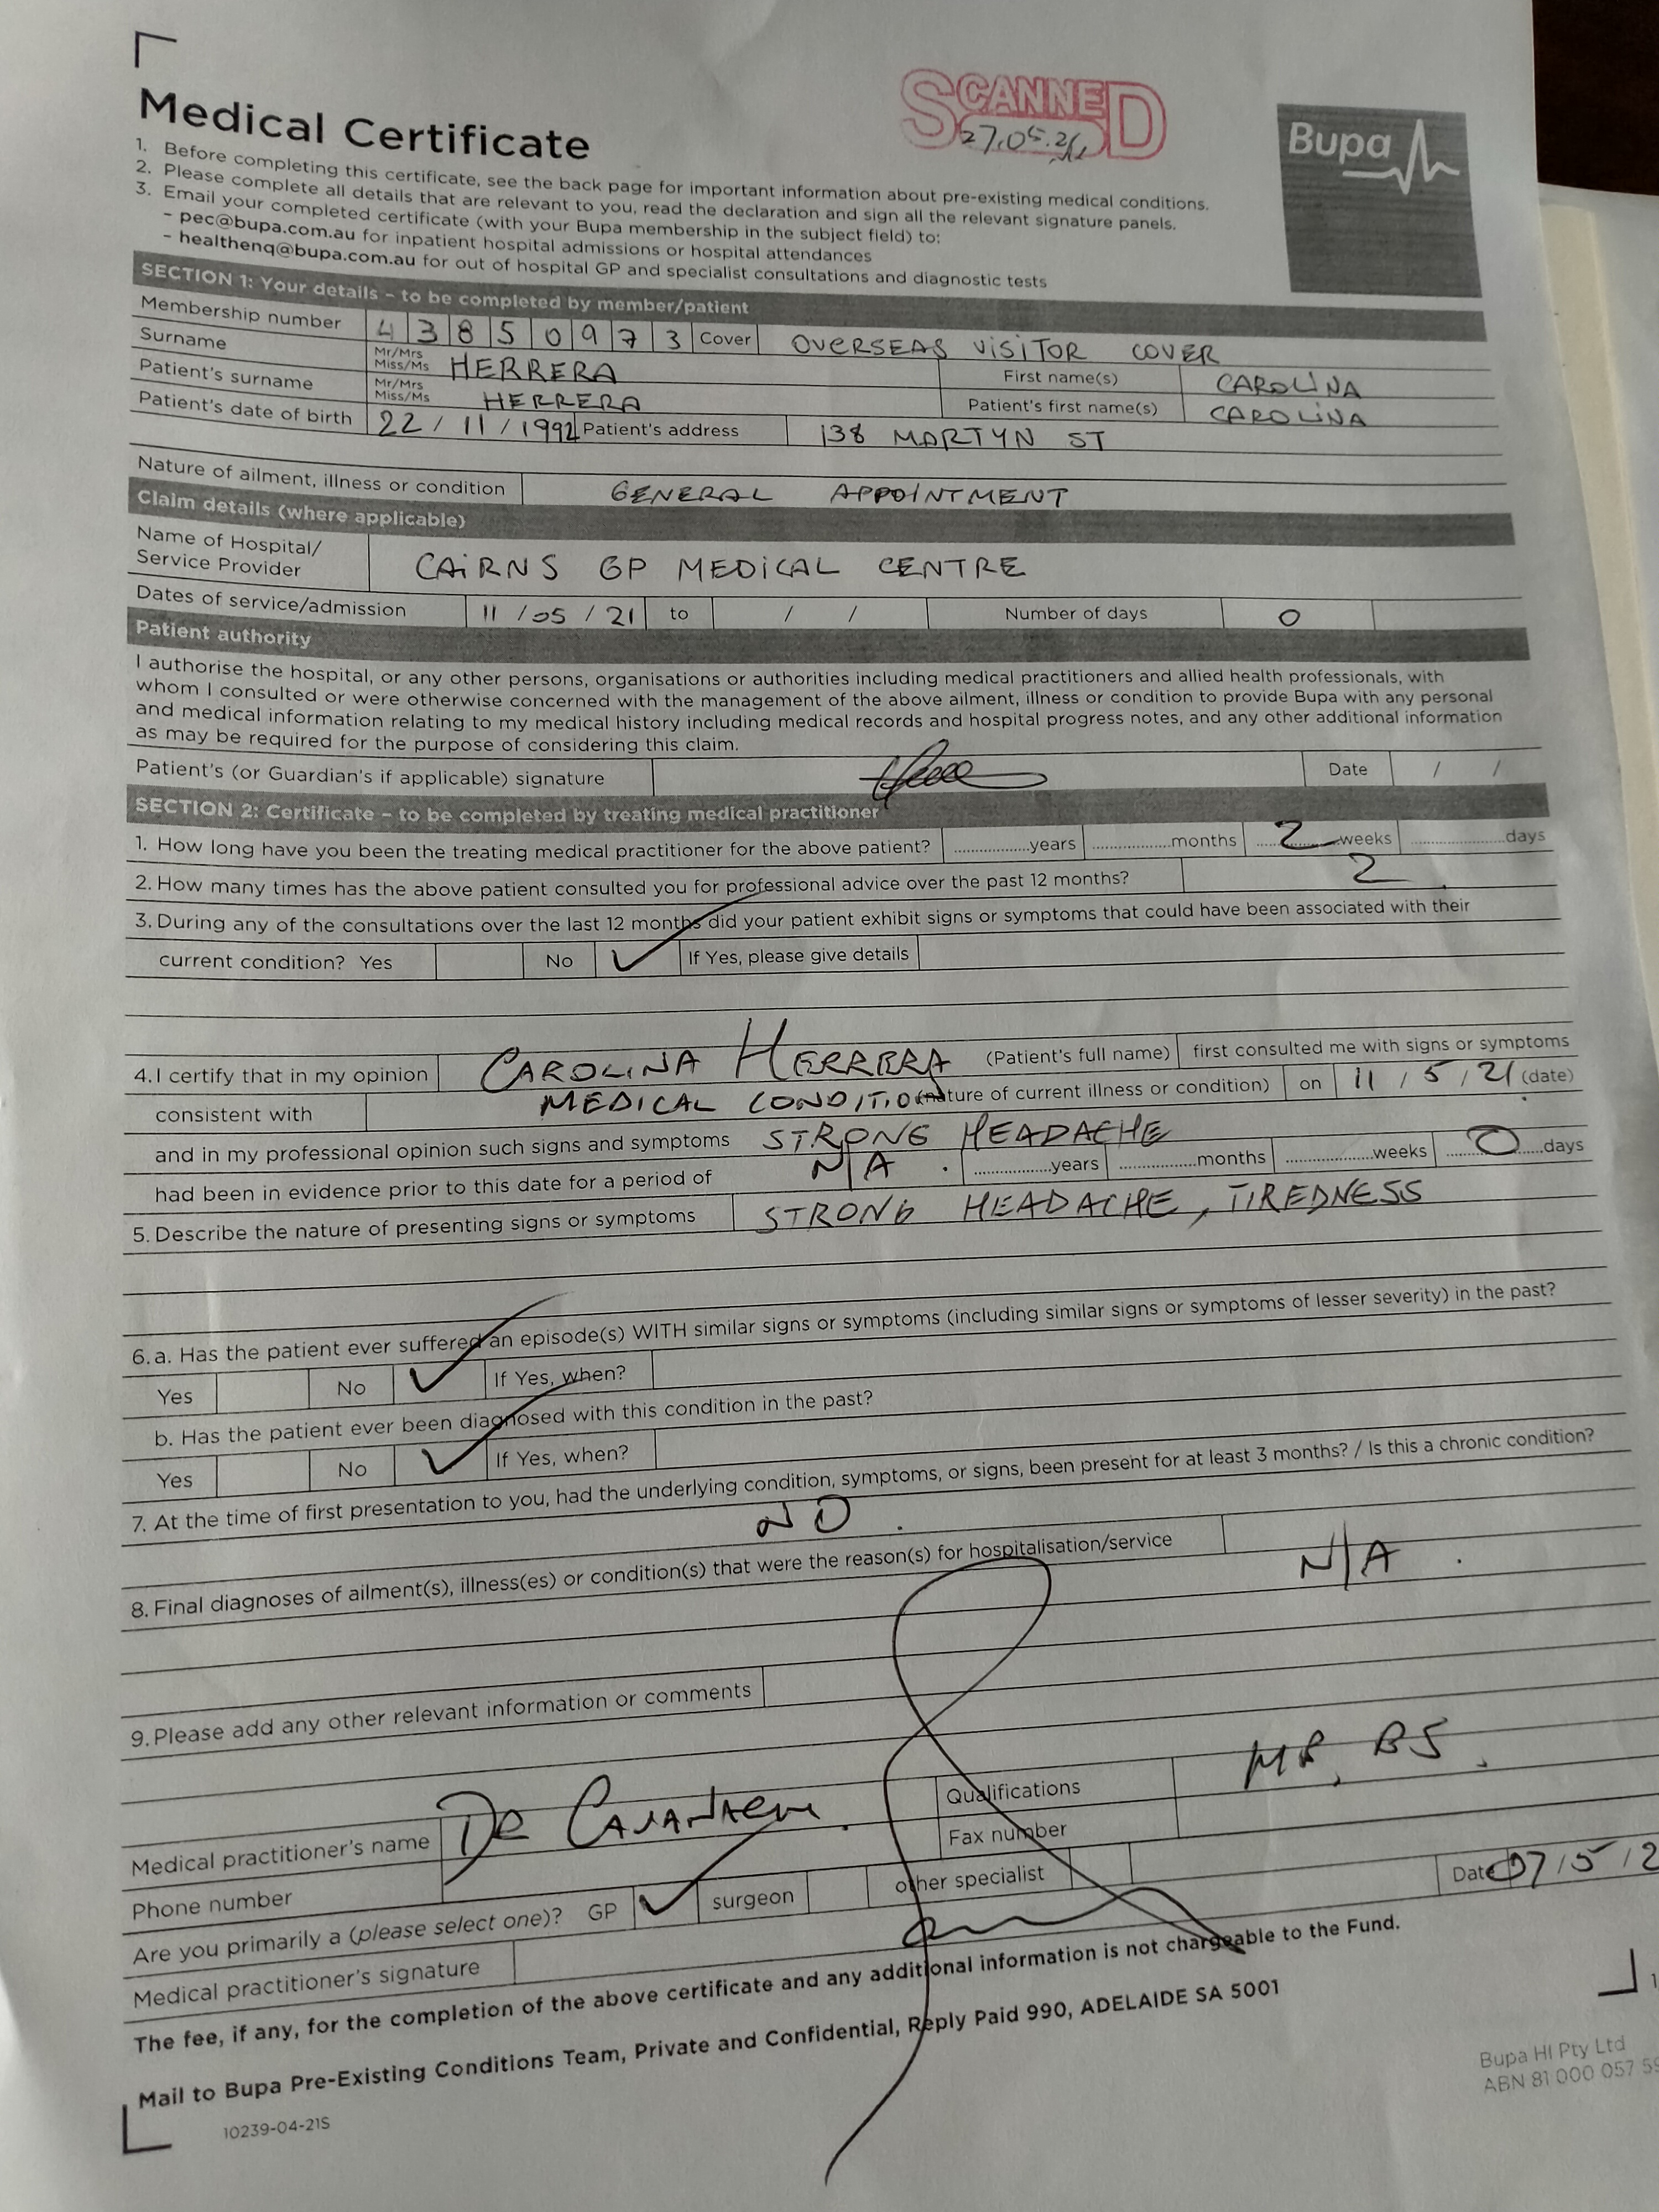 SCANNED
27.05.21
Bupa
Medical Certificate
1. Before completing this certificate, see the back page for important information about pre-existing medical conditions.
2. Please complete all details that are relevant to you, read the declaration and sign all the relevant signature panels.
3. Email your completed certificate (with your Bupa membership in the subject field) to:
– pec@bupa.com.au for inpatient hospital admissions or hospital attendances
– healthenq@bupa.com.au for out of hospital GP and specialist consultations and diagnostic tests
SECTION 1: Your details – to be completed by member/patient
Membership number 4 3 8 5 0 9 7 3 Cover OVERSEAS VISITOR COVER
Surname Mr/Mrs Miss/Ms HERRERA First name(s) CAROLINA
Patient's surname Mr/Mrs Miss/Ms HERRERA Patient's first name(s) CAROLINA
Patient's date of birth 22 / 11 / 1992 Patient's address 138 MARTYN ST
Nature of ailment, illness or condition GENERAL APPOINTMENT
Claim details (where applicable)
Name of Hospital/
Service Provider CAIRNS GP MEDICAL CENTRE
Dates of service/admission 11 / 05 / 21 to / / Number of days 0
Patient authority
I authorise the hospital, or any other persons, organisations or authorities including medical practitioners and allied health professionals, with
whom I consulted or were otherwise concerned with the management of the above ailment, illness or condition to provide Bupa with any personal
and medical information relating to my medical history including medical records and hospital progress notes, and any other additional information
as may be required for the purpose of considering this claim.
Patient's (or Guardian's if applicable) signature Date / /
SECTION 2: Certificate – to be completed by treating medical practitioner
1. How long have you been the treating medical practitioner for the above patient? ...............years ..................months 2 weeks ...................days
2. How many times has the above patient consulted you for professional advice over the past 12 months? 2
3. During any of the consultations over the last 12 months did your patient exhibit signs or symptoms that could have been associated with their
current condition? Yes No ✓ If Yes, please give details
4. I certify that in my opinion CAROLINA HERRERA (Patient's full name) first consulted me with signs or symptoms
consistent with MEDICAL CONDITION (nature of current illness or condition) on 11 / 5 / 21 (date)
and in my professional opinion such signs and symptoms STRONG HEADACHE
had been in evidence prior to this date for a period of N/A. ...............years ...............months ................weeks 0 days
5. Describe the nature of presenting signs or symptoms STRONG HEADACHE, TIREDNESS
6. a. Has the patient ever suffered an episode(s) WITH similar signs or symptoms (including similar signs or symptoms of lesser severity) in the past?
Yes No ✓ If Yes, when?
b. Has the patient ever been diagnosed with this condition in the past?
Yes No ✓ If Yes, when?
7. At the time of first presentation to you, had the underlying condition, symptoms, or signs, been present for at least 3 months? / Is this a chronic condition?
NO.
8. Final diagnoses of ailment(s), illness(es) or condition(s) that were the reason(s) for hospitalisation/service N/A.
9. Please add any other relevant information or comments
Medical practitioner's name DR Qualifications MB, BS.
Phone number Fax number
Are you primarily a (please select one)? GP ✓ surgeon other specialist
Medical practitioner's signature Date /5/2
The fee, if any, for the completion of the above certificate and any additional information is not chargeable to the Fund.
Mail to Bupa Pre-Existing Conditions Team, Private and Confidential, Reply Paid 990, ADELAIDE SA 5001
10239-04-21S
Bupa HI Pty Ltd
ABN 81 000 057 59